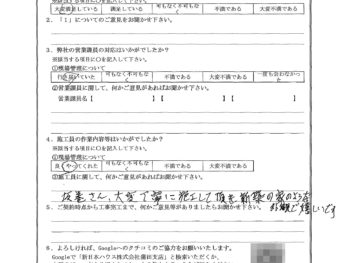 ※該当する項目に〇を記入して下さい。
大変満足している 満足している 可もなく不可もなく 不満である 大変不満である
2.「1」についてのご意見をお聞かせ下さい。
3.弊社の営業課員の対応はいかがでしたか?
※該当する項目に〇を記入して下さい。
①現場管理について
行き届いていた 可もなく不可もなく 不満である 大変不満である 一度も会わなかった
②営業課員に関して、何かご意見があればお聞かせ下さい。
営業課員名【 】【 】【 】
4.施工員の作業内容等はいかがでしたか?
※該当する項目に〇を記入して下さい。
①現場管理について
良くやってくれた 可もなく不可もなく 不満である 大変不満である
②施工員に関して、何かご意見があればお聞かせ下さい。
さん、大変丁寧に施工して頂き新築の家のような
外観で嬉しいです
5.ご契約時点から工事完工まで、何かご意見等がありましたらお聞かせ下さい。
6.よろしければ、Googleへのクチコミのご協力をお願いいたします。
Googleで「新日本ハウス株式会社藤田支店」と検索いただくか、